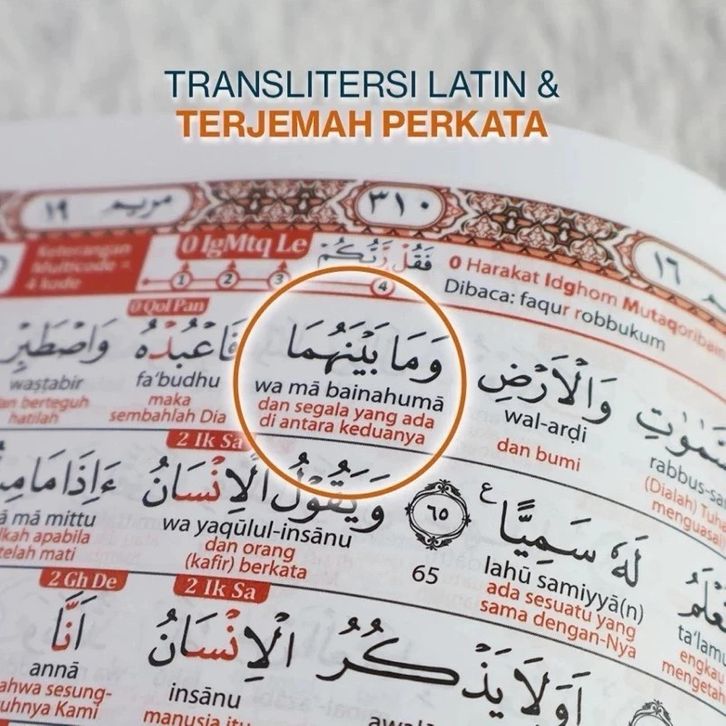 TRANSLITERSI LATIN &
TERJEMAH PERKATA
مريم ١٩
٣١٠
١٦
Keterangan
Multicode =
4 kode
0 IgMtq Le
1 2 3 4
فَقُلْ رَّبُّكُمْ
0 Harakat Idghom Mutaqoribain
Dibaca: faqur robbukum
0 Qol Pan
وَالْاَرْضِ وَمَا بَيْنَهُمَا فَاعْبُدْهُ وَاصْطَبِرْ
rabbus-sa wal-arḍi wa mā bainahumā fa'budhu waṣtabir
(Dialah) Tuh dan bumi dan segala yang ada maka an berteguh
menguasai di antara keduanya sembahlah Dia hatilah
2 Ik Sa
لَهٗ سَمِيًّا ࣖ ٦٥ وَيَقُوْلُ الْاِنْسَانُ ءَاِذَا مَا مِ
ta'lamu lahū samiyyā(n) 65 wa yaqūlul-insānu ā mā mittu
engkau ada sesuatu yang dan orang kah apabila
mengetah sama dengan-Nya (kafir) berkata telah mati
2 Ik Sa 2 Gh De
اَوَلَا يَذْكُرُ الْاِنْسَانُ اَنَّا
awala insānu annā
manusia itu ahwa sesung-
uhnya Kami